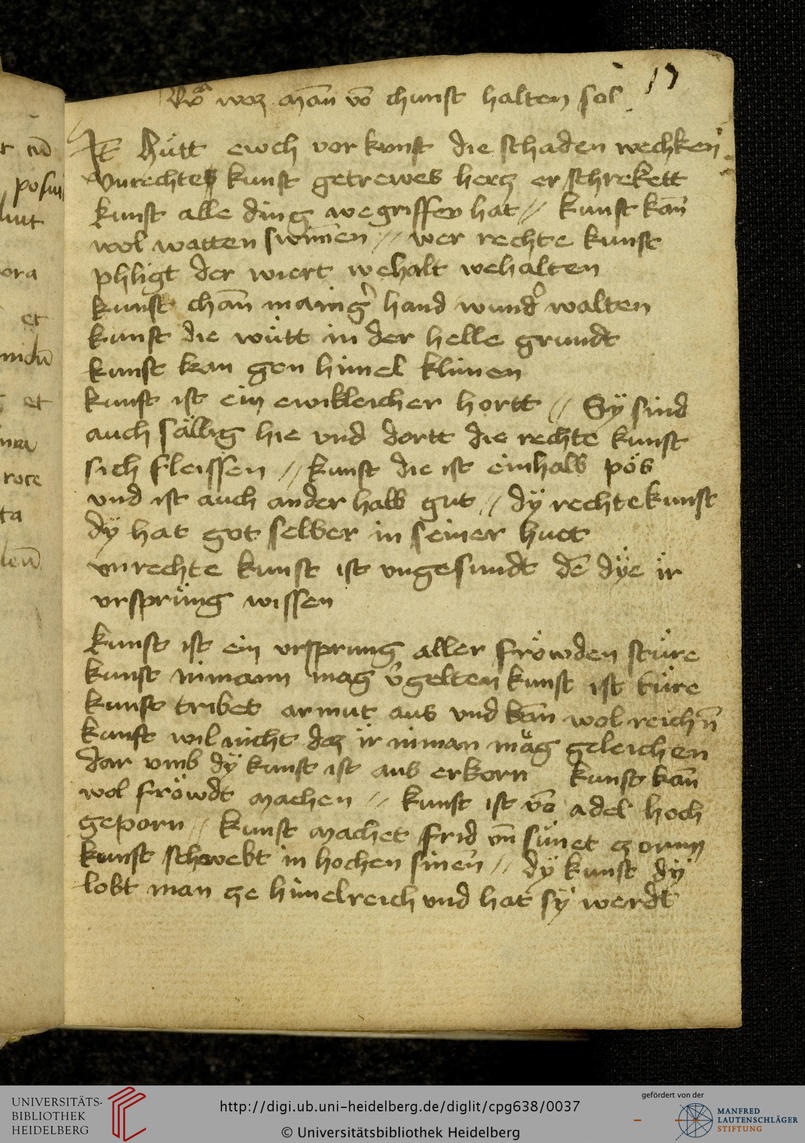 woz man vō chunst halten sol 17
Hütt ewch vor kunst die schaden wechken
Vnrechte kunst getrewes hercz erschrekett
kunst alle ding wegriffen hat // kunst kan̄
wol watten swīmen // wer rechte kunst
phligt der wiert wehalt wehalten
kunst chan̄ maing hand wund walten
kunst die wütt in der helle grundt
kunst kan gen himel klimen
kunst ist ein ewikleicher hortt // Sÿ sind
auch sällig hie vnd dortt die rechte kunst
sich fleissen // kunst die ist einhalb pös
vnd ist auch ander halb gut // dÿ rechte kunst
dÿ hat got selber in seiner huet
vnrechte kunst ist vngesundt dē dÿe ir
vrsprüng wissen
kunst ist ein vrsprung aller fröwden stüre
kunst nimann mag v̄gelten kunst ist türe
kunst tribet armut aus vnd kan̄ wol reichn̄
kunst wil nicht dcz ir niman mäg geleichen
dar vmb dÿ kunst ist aus erkorn kunst kan̄
wol fröwdt machen // kunst ist vō adel hoch
geporn // kunst machet frid vn̄ sünet czorнn
kunst schwebt in hochen sinen // dÿ kunst dÿ
lobt man ze himelreich vnd hat sÿ werdt
t cū
posui
ora
et
et
roce
ta
UNIVERSITÄTS-
BIBLIOTHEK
HEIDELBERG
http://digi.ub.uni-heidelberg.de/diglit/cpg638/0037
© Universitätsbibliothek Heidelberg
gefördert von der
MANFRED
LAUTENSCHLÄGER
STIFTUNG